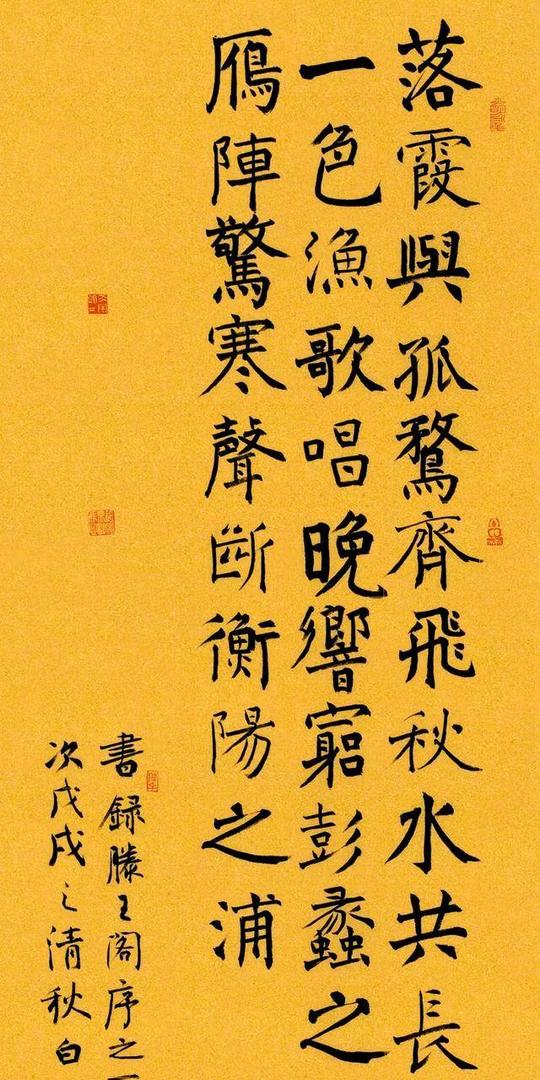 落霞與孤鶩齊飛秋水共長
一色漁歌唱晚響竆彭蠡之
鴈陣驚寒聲斷衡陽之浦
書録滕王閣序之
次戊戌之清秋白